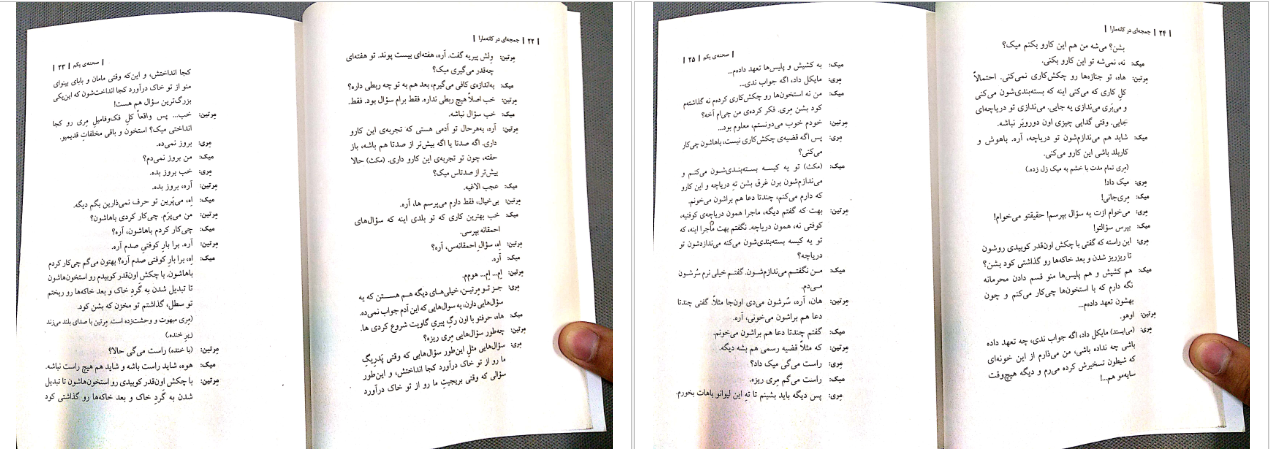 | ۲۲ | جمجمه‌ای در کانه‌مارا |
مِرتین: ولش پیریه گفت. آره، هفته‌ای بیست پوند. تو هفته‌ای
چه‌قدر می‌گیری میک؟
میک: به‌اندازه‌ی کافی می‌گیرم، بعد هم به تو چه ربطی داره؟
مِرتین: خب اصلاً هیچ ربطی نداره. فقط برام سؤال بود. فقط.
میک: خب سؤال نباشه.
مِرتین: آره، به‌هرحال تو آدمی هستی که تجربه‌ی این کارو
داری. اگه صدتا یا اگه بیش‌تر از صدتا هم باشه، باز
حقته، چون تو تجربه‌ی این کارو داری. (مکث) حالا
بیش‌تر از صدتاس میک؟
میک: عجب الاغیه.
مِرتین: بی‌خیال، فقط دارم می‌پرسم ها، آره.
میک: خب بهترین کاری که تو بلدی اینه که سؤال‌های
احمقانه بپرسی.
مِرتین: اِه، سؤالِ احمقانه‌س، آره؟
میک: آره.
مِرتین: اِم... اِم... هوم‌م.
مِری: جز تو مِرتین، خیلی‌های دیگه هم هستن که یه
سؤال‌هایی دارن، یه سوال‌هایی که این آدم جواب نمی‌ده.
میک: هاه، حرفتو با اون رگِ پیریِ گاویت شروع کردی ها.
مِرتین: چه‌طور سؤال‌هایی مِری ریزه؟
مِری: سؤال‌هایی مثلِ این‌طور سؤال‌هایی که وقتی پَدریگِ
ما رو از تو خاک درآورد کجا انداختش، و این‌طور
سؤالی که وقتی بریجیتِ ما رو از تو خاک درآورد
| صحنه‌ی یکم | ۲۳ |
کجا انداختش، و این‌که وقتی مامان و بابای بینوای
منو از تو خاک درآورد کجا انداخت‌شون که این‌یکی
بزرگ‌ترین سؤال هم هست!
مِرتین: خب... پس واقعاً کلِ فک‌وفامیلِ مِری رو کجا
انداختی میک؟ استخون و باقی مخلفاتِ قدیمیو.
مِری: بروز نمی‌ده.
میک: من بروز نمی‌دم؟
مِری: خب بروز بده.
مِرتین: آره، بروز بده.
میک: اِه، می‌پرین تو حرف نمی‌ذارین بگم دیگه.
مِرتین: من می‌پرَم. چی‌کار کردی باهاشون؟
میک: چی‌کار کردم باهاشون، آره؟
مِرتین: آره. برا بارِ کوفتیِ صدم آره.
میک: اِه، برا بارِ کوفتی صدم آره؟ بهتون می‌گم چی‌کار کردم
باهاشون. با چکش اون‌قدر کوبیدم رو استخون‌هاشون
تا تبدیل شدن به گَرد خاک و بعد خاکه‌ها رو ریختم
تو سطل، گذاشتم تو مخزن که بشن کود.
(مِری مبهوت و وحشت‌زده است. مِرتین با صدای بلند می‌زند
زیرِ خنده.)
مِرتین: (با خنده) راست می‌گی حالا؟
میک: هوه، شاید راست باشه و شاید هم هیچ راست نباشه.
مِرتین: با چکش اون‌قدر کوبیدی رو استخون‌هاشون تا تبدیل
شدن به گَردِ خاک و بعد خاکه‌ها رو گذاشتی کود
| ۲۴ | جمجمه‌ای در کانه‌مارا |
بشن؟ می‌شه من هم این کارو بکنم میک؟
میک: نه، نمی‌شه تو این کارو بکنی.
مِرتین: هاه، تو جنازه‌ها رو چکش‌کاری نمی‌کنی. احتمالاً
کلِ کاری که می‌کنی اینه که بسته‌بندی‌شون می‌کنی
و می‌بَری می‌ندازی یه جایی. می‌ندازی تو دریاچه‌ای
جایی. وقتی گدایی چیزی اون دوروبَر نباشه.
میک: شاید هم می‌ندازم‌شون تو دریاچه، آره. باهوش و
کاربلد باشی این کارو می‌کنی.
(مِری تمام مدت با خشم به میک زل زده.)
مِری: میک داد!
میک: مِری‌جانی!
مِری: می‌خوام ازت یه سؤال بپرسم! حقیقتو می‌خوام!
میک: بپرس سؤالتو!
مِری: این راسته که گفتی با چکش اون‌قدر کوبیدی روشون
تا ریزریز شدن و بعد خاکه‌ها رو گذاشتی کود بشن؟
میک: هم کشیش و هم پلیس‌ها منو قسم دادن محرمانه
نگه دارم که با استخون‌ها چی‌کار می‌کنم و چون
بهشون تعهد داده‌م...
مِرتین: اوهو.
مِری: (می‌ایستد) مایکل داد، اگه جواب ندی، چه تعهد داده
باشی چه نداده باشی، من می‌ذارم از این خونه‌ای
که شیطون تسخیرش کرده می‌رم و دیگه هیچ‌وقت
سایه‌مو هم...!
| صحنه‌ی یکم | ۲۵ |
میک: به کشیش و پلیس‌ها تعهد داده‌م...
مِری: مایکل داد، اگه جواب ندی...
میک: من نه استخون‌ها رو چکش‌کاری کرده‌م نه گذاشته‌م
کود بشن مِری. فکر کرده‌ی من چی‌ام آخه؟
مِرتین: خودم خوب می‌دونستم، معلوم بود...
مِری: پس اگه قضیه‌ی چکش‌کاری نیست، باهاشون چی‌کار
می‌کنی؟
میک: (مکث) تو یه کیسه بسته‌بندی‌شون می‌کنم و
می‌ندازم‌شون برن غرق بشن تهِ دریاچه و این کارو
که دارم می‌کنم، چندتا دعا هم براشون می‌خونم.
مِرتین: بهت که گفتم دیگه، ماجرا همون دریاچه‌ی کوفتیه،
کوفتی نه، همون دریاچه. نگفتم بهت ماجرا اینه، که
تو یه کیسه بسته‌بندی‌شون می‌کنه می‌ندازدشون تو
دریاچه؟
میک: من نگفتم می‌ندازم‌شون. گفتم خیلی نرم سُرشون
می‌دم.
مِرتین: هان، آره، سُرشون می‌دی اون‌جا مثلاً. گفتی چندتا
دعا هم براشون می‌خونی، آره.
میک: گفتم چندتا دعا هم براشون می‌خونم.
مِرتین: که مثلاً قضیه رسمی هم بشه دیگه.
مِری: راست می‌گی میک داد؟
میک: راست می‌گم مِری ریزه.
مِری: پس دیگه باید بشینم تا تهِ این لیوانو باهات بخورم.